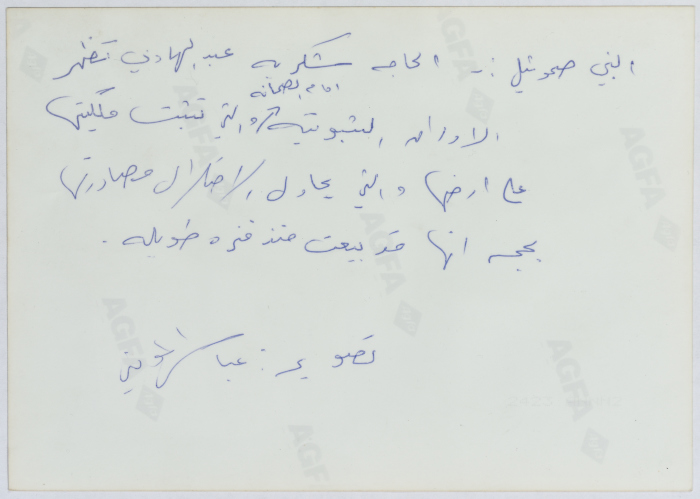 النبي صموئيل :- الحاجه شكريه عبد الهادي تظهر
امام الصحافه
الاوراق الثبوتيه والتي تثبت ملكيتها
على ارضها والتي يحاول الاحتلال مصادرتها
بحجه انها قد بيعت منذ فتره طويله .
تصوير : عباس المومني
AGFA
AGFA
AGFA
AGFA
AGFA
AGFA
AGFA